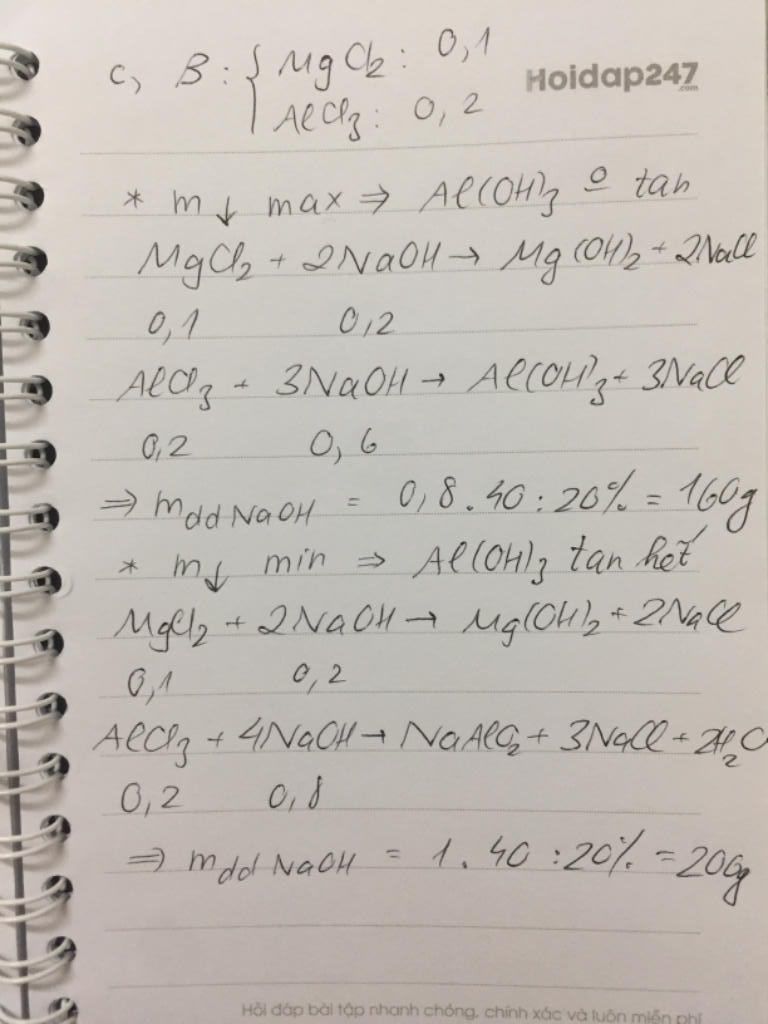 c, B : { MgCl2 : 0,1
Hoidap247
.com
AlCl3 : 0,2
* m↓ max ⇒ Al(OH)3 o tan
MgCl2 + 2NaOH → Mg(OH)2 + 2NaCl
0,1 0,2
AlCl3 + 3NaOH → Al(OH)3 + 3NaCl
0,2 0,6
⇒ mdd NaOH = 0,8 . 40 : 20% = 160g
* m↓ min ⇒ Al(OH)3 tan hết
MgCl2 + 2NaOH → Mg(OH)2 + 2NaCl
0,1 0,2
AlCl3 + 4NaOH → NaAlO2 + 3NaCl + 2H2O
0,2 0,8
⇒ mdd NaOH = 1 . 40 : 20% = 200g
Hỏi đáp bài tập nhanh chóng, chính xác và luôn miễn phí